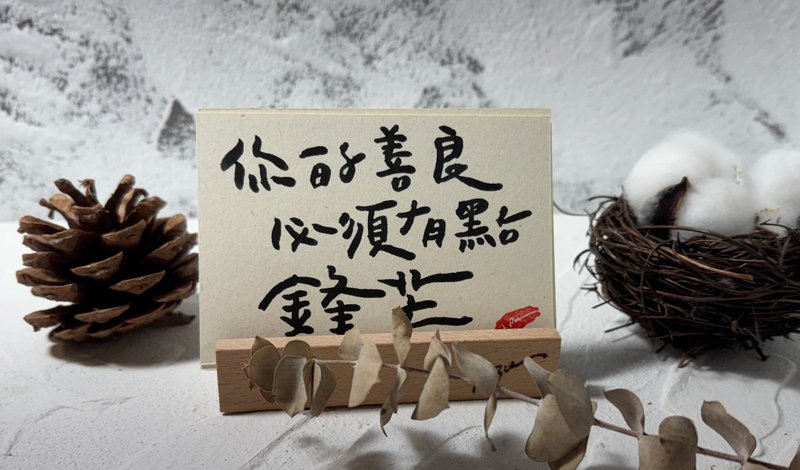 你的善良
必須有點
鋒芒